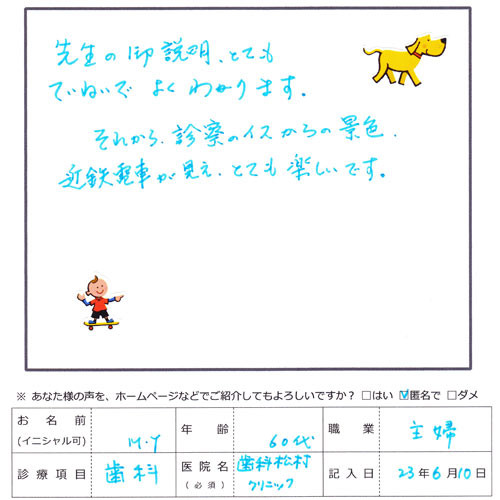 先生の御説明、とても
ていねいで よく わかります。
それから、診察のイスからの景色、
近鉄電車が見え、とても楽しいです。
※ あなた様の声を、ホームページなどでご紹介してもよろしいですか？ □はい ☑匿名で □ダメ
お名前 (イニシャル可) M.Y 年齢 60代 職業 主婦
診療項目 歯科 医院名 (必須) 歯科松村クリニック 記入日 23年6月10日